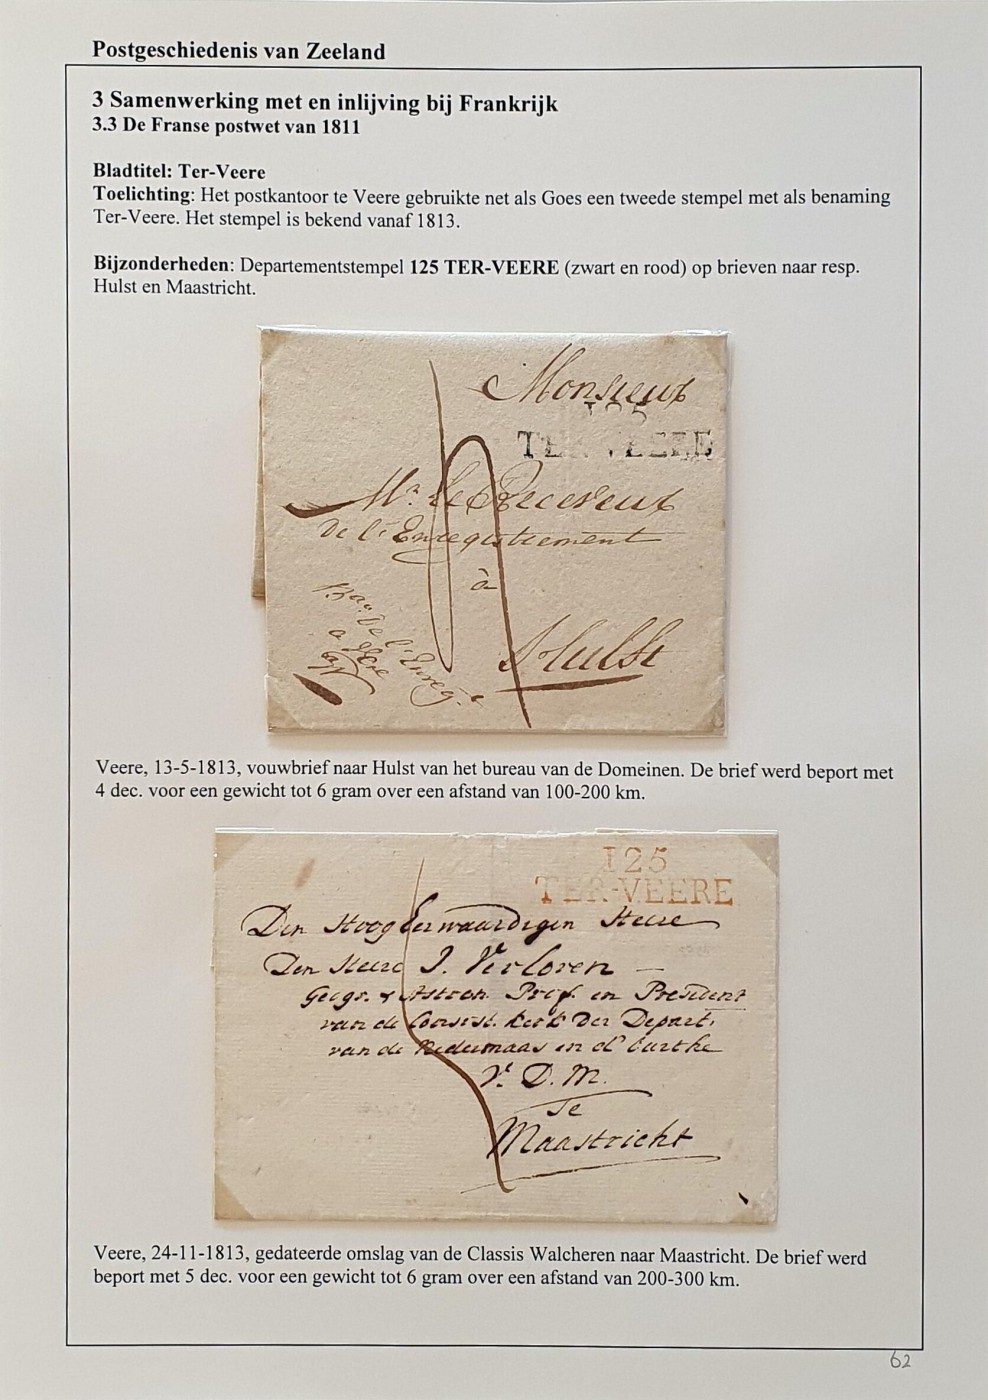 Postgeschiedenis van Zeeland
3 Samenwerking met en inlijving bij Frankrijk
3.3 De Franse postwet van 1811
Bladtitel: Ter-Veere
Toelichting: Het postkantoor te Veere gebruikte net als Goes een tweede stempel met als benaming
Ter-Veere. Het stempel is bekend vanaf 1813.
Bijzonderheden: Departementstempel 125 TER-VEERE (zwart en rood) op brieven naar resp.
Hulst en Maastricht.
Monsieur
125
TER-VEERE
Mr. le Receveur
De l'Enregistrement
à
Hulst
De l'Enreg.
Veere, 13-5-1813, vouwbrief naar Hulst van het bureau van de Domeinen. De brief werd beport met
4 dec. voor een gewicht tot 6 gram over een afstand van 100-200 km.
125
TER-VEERE
Den HoogEerwaardigen Heere
Den Heere J. Verloren
Geogr. & Astron. Prof. en President
van de Consist. kerk Der Depart.
van de Nedermaas en
V. D. M.
Te
Maastricht
Veere, 24-11-1813, gedateerde omslag van de Classis Walcheren naar Maastricht. De brief werd
beport met 5 dec. voor een gewicht tot 6 gram over een afstand van 200-300 km.
62